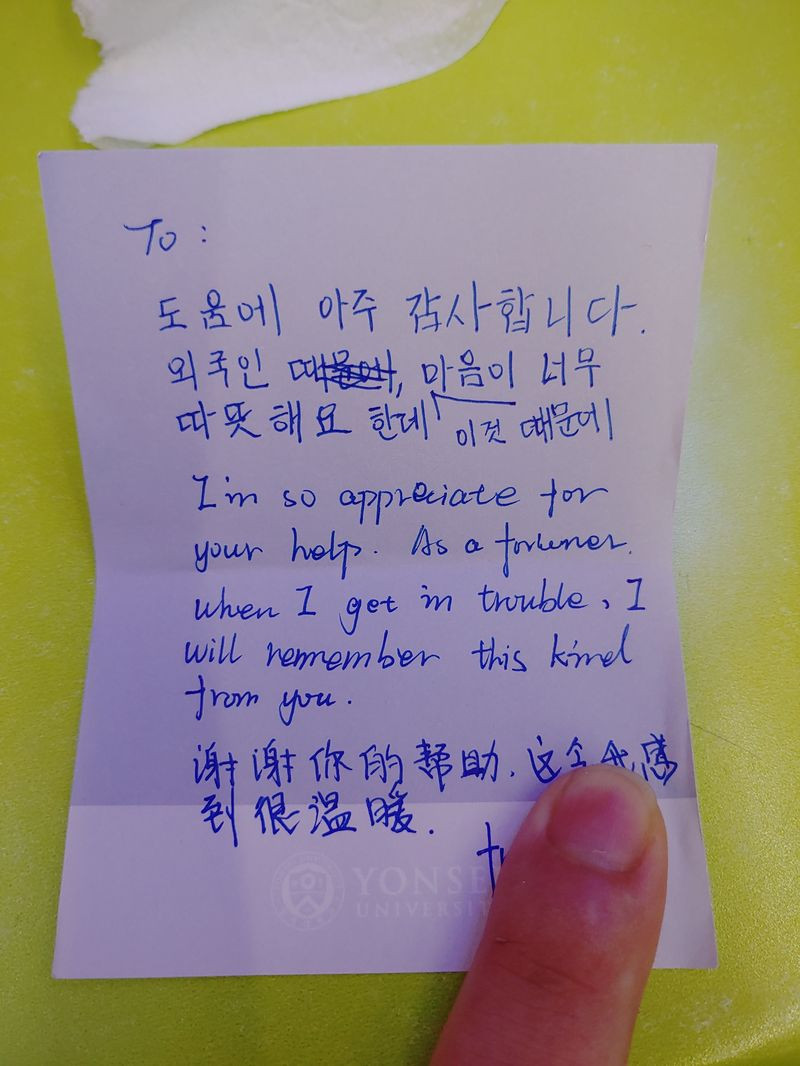 To :
도움에 아주 감사합니다.
외국인 마음이 너무
따뜻해요 한데 이것 때문에
I'm so appreciate for
your help. As a foruner.
when I get in trouble, I
will remember this kind
from you.
谢谢你的帮助.这令我感
到很温暖.
YONSE
UNIVERSIT